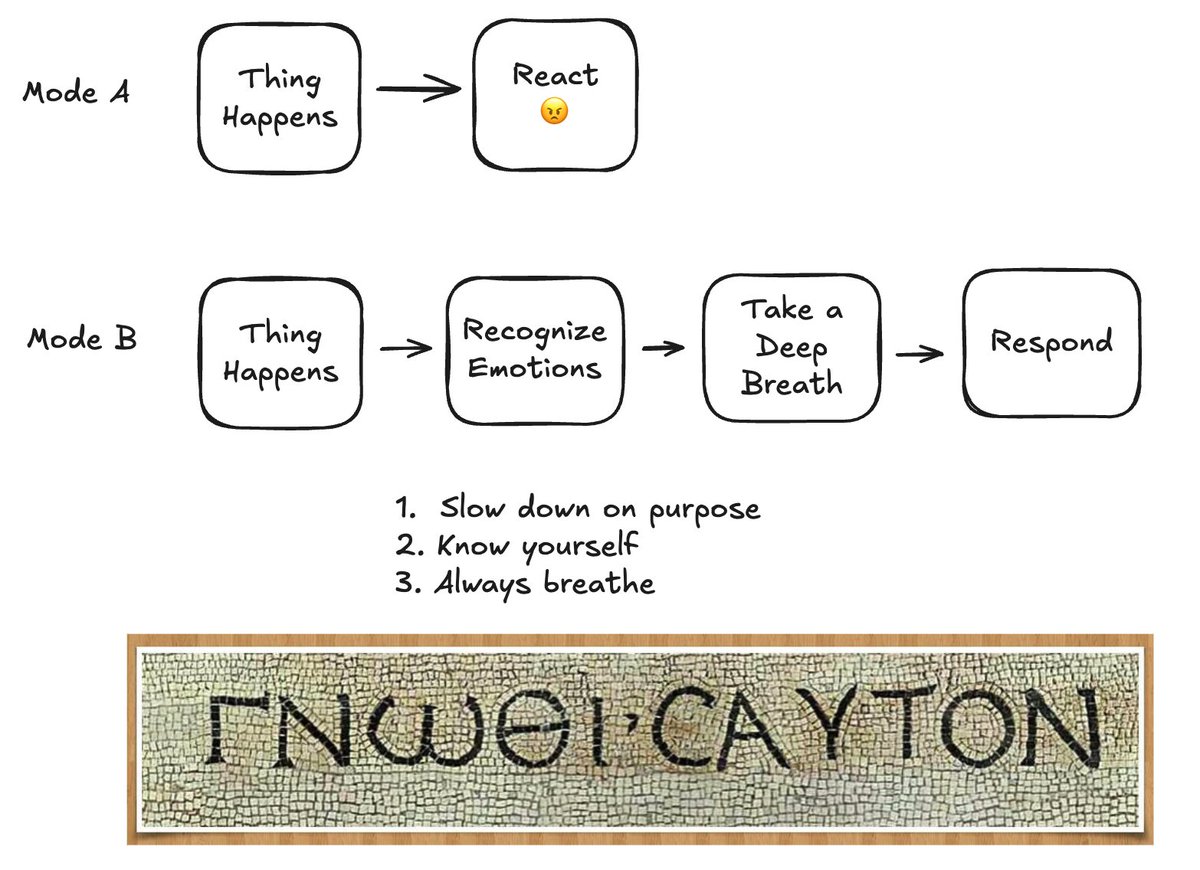 Mode A
Thing
Happens
React
😠
Mode B
Thing
Happens
Recognize
Emotions
Take a
Deep
Breath
Respond
1. Slow down on purpose
2. Know yourself
3. Always breathe
ΓΝωΘΙ·CΑΥΤΟΝ